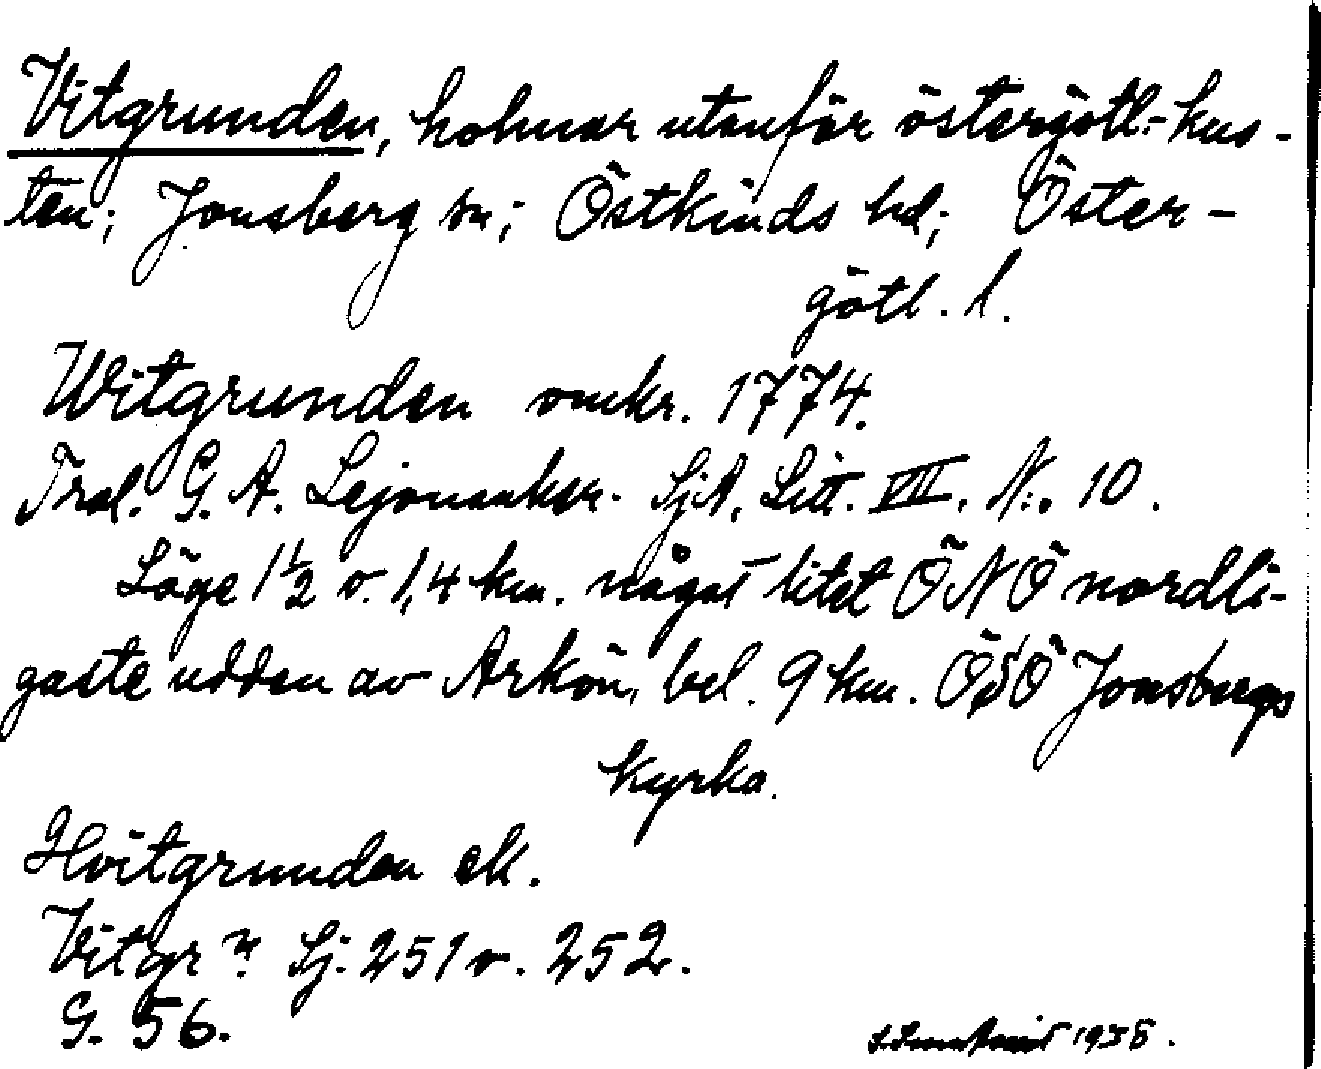 Vitgrunden, holmar utanför östergötl.-kus-
ten; Jonsberg sn; Östkinds hd; Öster-
götl. l.
Witgrunden omkr. 1774.
G. A. Lejonanker. SjA. Litt. VII. N:o 10.
Läge 1½ o. 1,4 km. något litet ÖNÖ nordli-
gaste udden av Arkön, bel. 9 km. ÖSÖ Jonsbergs
kyrka.
Hvitgrunden ek.
Vitgrn Sj. 251 o. 252.
G. 56.